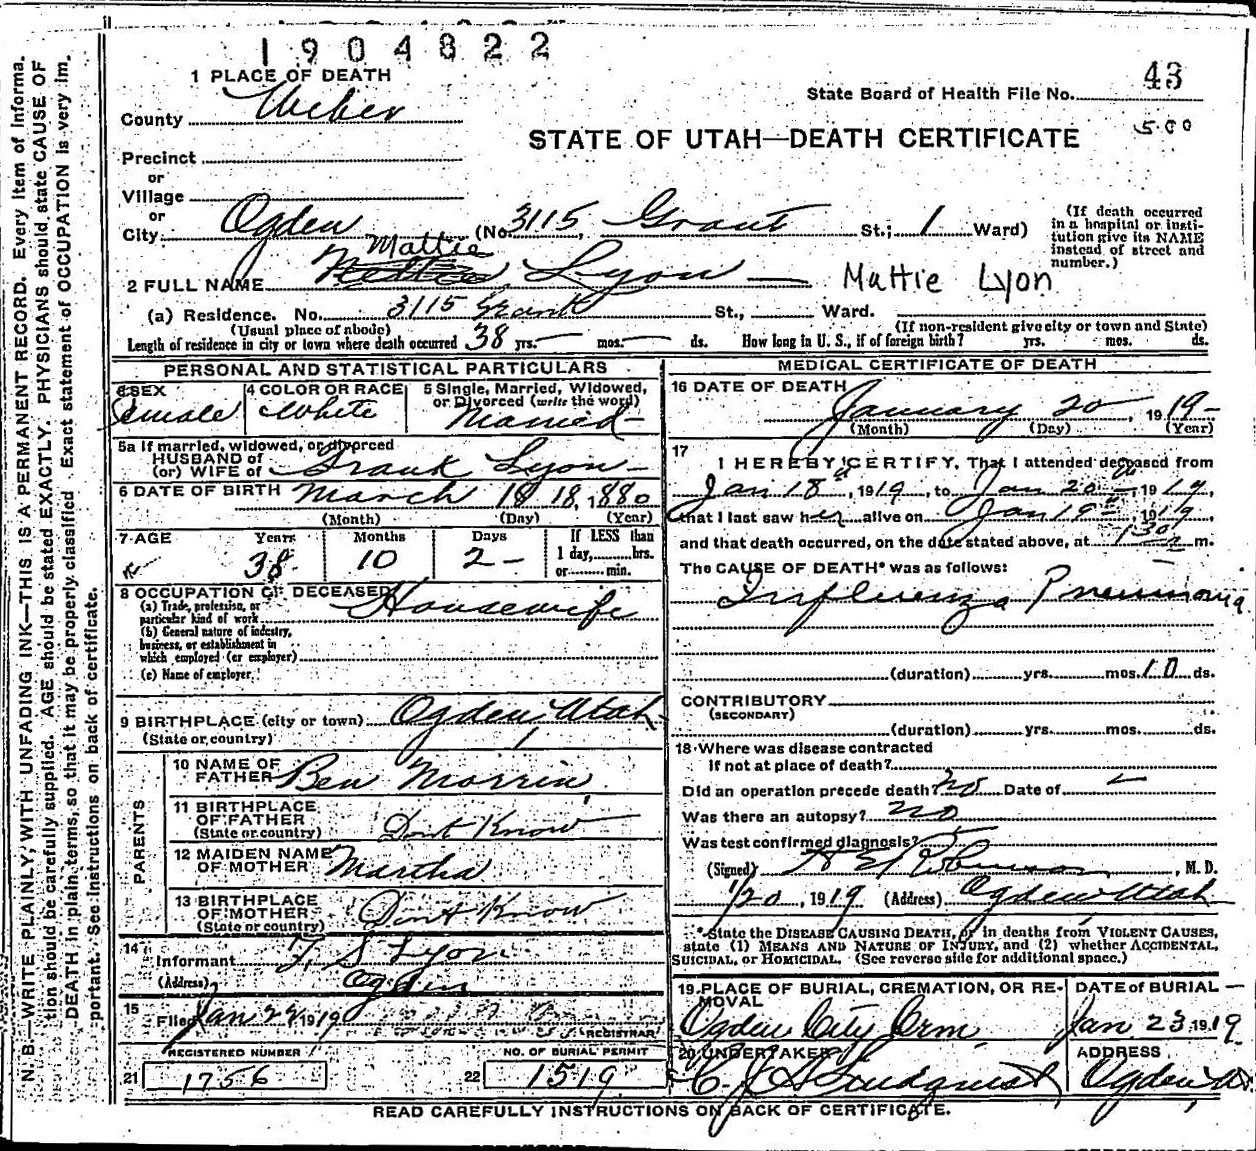 1904822
1 PLACE OF DEATH
43
County Weber
State Board of Health File No.
STATE OF UTAH—DEATH CERTIFICATE
500
Precinct
or
Village
or
City Ogden (No. 3115, Grant St.; 1 Ward)
(If death occurred in a hospital or insti-
tution give its NAME instead of street and number.)
Mattie
2 FULL NAME Lyon
Mattie Lyon
(a) Residence. No. 3115 Grant St., Ward.
(Usual place of abode)
(If non-resident give city or town and State)
Length of residence in city or town where death occurred 38 yrs. mos. ds. How long in U. S., if of foreign birth? yrs. mos. ds.
PERSONAL AND STATISTICAL PARTICULARS
3 SEX Female
4 COLOR OR RACE White
5 Single, Married, Widowed,
or Divorced (write the word)
Married
5a If married, widowed, or divorced
HUSBAND of
(or) WIFE of Frank Lyon
6 DATE OF BIRTH March 18 18, 1880
(Month) (Day) (Year)
7 AGE Years Months Days If LESS than
38 10 2 1 day, hrs.
or min.
8 OCCUPATION OF DECEASED Housewife
(a) Trade, profession, or
particular kind of work
(b) General nature of industry,
business, or establishment in
which employed (or employer)
(c) Name of employer
9 BIRTHPLACE (city or town) Ogden Utah
(State or country)
PARENTS
10 NAME OF
FATHER Ben Morrin
11 BIRTHPLACE
OF FATHER
(State or country) Dont Know
12 MAIDEN NAME
OF MOTHER Martha
13 BIRTHPLACE
OF MOTHER
(State or country) Dont Know
14
Informant F. S Lyon
(Address) Ogden
15
Filed Jan 22 1919
REGISTRAR
REGISTERED NUMBER
21 1756
NO. OF BURIAL PERMIT
22 1519
MEDICAL CERTIFICATE OF DEATH
16 DATE OF DEATH
January 20, 1919
(Month) (Day) (Year)
17
I HEREBY CERTIFY, That I attended deceased from
Jan 18, 1919, to Jan 20, 1919,
that I last saw her alive on Jan 19, 1919,
and that death occurred, on the date stated above, at 130 m.
The CAUSE OF DEATH* was as follows:
Influenza Pneumonia
(duration) yrs. mos. 10 ds.
CONTRIBUTORY
(SECONDARY)
(duration) yrs. mos. ds.
18 Where was disease contracted
if not at place of death?
Did an operation precede death? no Date of
Was there an autopsy? no
Was test confirmed diagnosis?
(Signed) Robinson, M. D.
1/20, 1919 (Address) Ogden Utah
*State the DISEASE CAUSING DEATH, or in deaths from VIOLENT CAUSES,
state (1) MEANS AND NATURE OF INJURY, and (2) whether ACCIDENTAL,
SUICIDAL, or HOMICIDAL. (See reverse side for additional space.)
19 PLACE OF BURIAL, CREMATION, OR RE-
MOVAL
Ogden City Cem
DATE of BURIAL
Jan 23, 1919
20 UNDERTAKER
ADDRESS
Ogden Ut
READ CAREFULLY INSTRUCTIONS ON BACK OF CERTIFICATE.
N. B.—WRITE PLAINLY, WITH UNFADING INK—THIS IS A PERMANENT RECORD. Every item of informa-
tion should be carefully supplied. AGE should be stated EXACTLY. PHYSICIANS should state CAUSE OF
DEATH in plain terms, so that it may be properly classified. Exact statement of OCCUPATION is very im-
portant. See instructions on back of certificate.